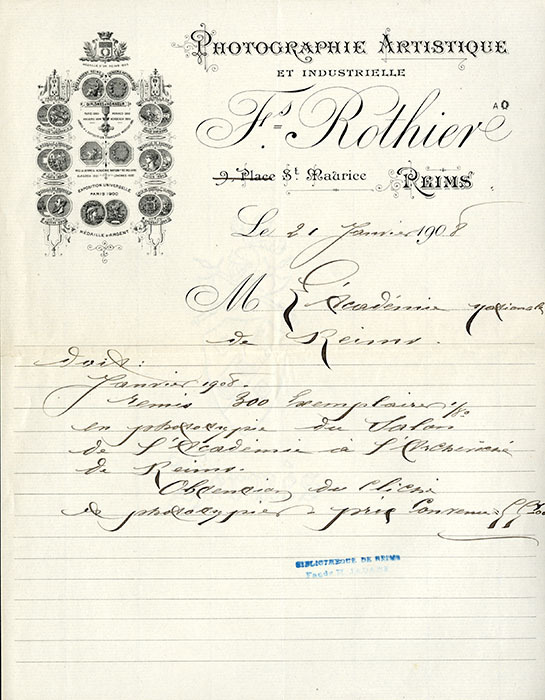 PHOTOGRAPHIE ARTISTIQUE
ET INDUSTRIELLE
Fs. Rothier
9, Place St. Maurice REIMS
Le 21 Janvier 1908
M L'Académie nationale
de Reims.
doit:
Janvier 1908.
Remis 300 Exemplaires
en phototypie du Salon
de l'Académie à l'Archevêché
de Reims.
Obtention du Cliché
de phototypie prix Convenu =
EXPOSITION UNIVERSELLE
PARIS 1900
MÉDAILLE D'ARGENT
BIBLIOTHEQUE DE REIMS